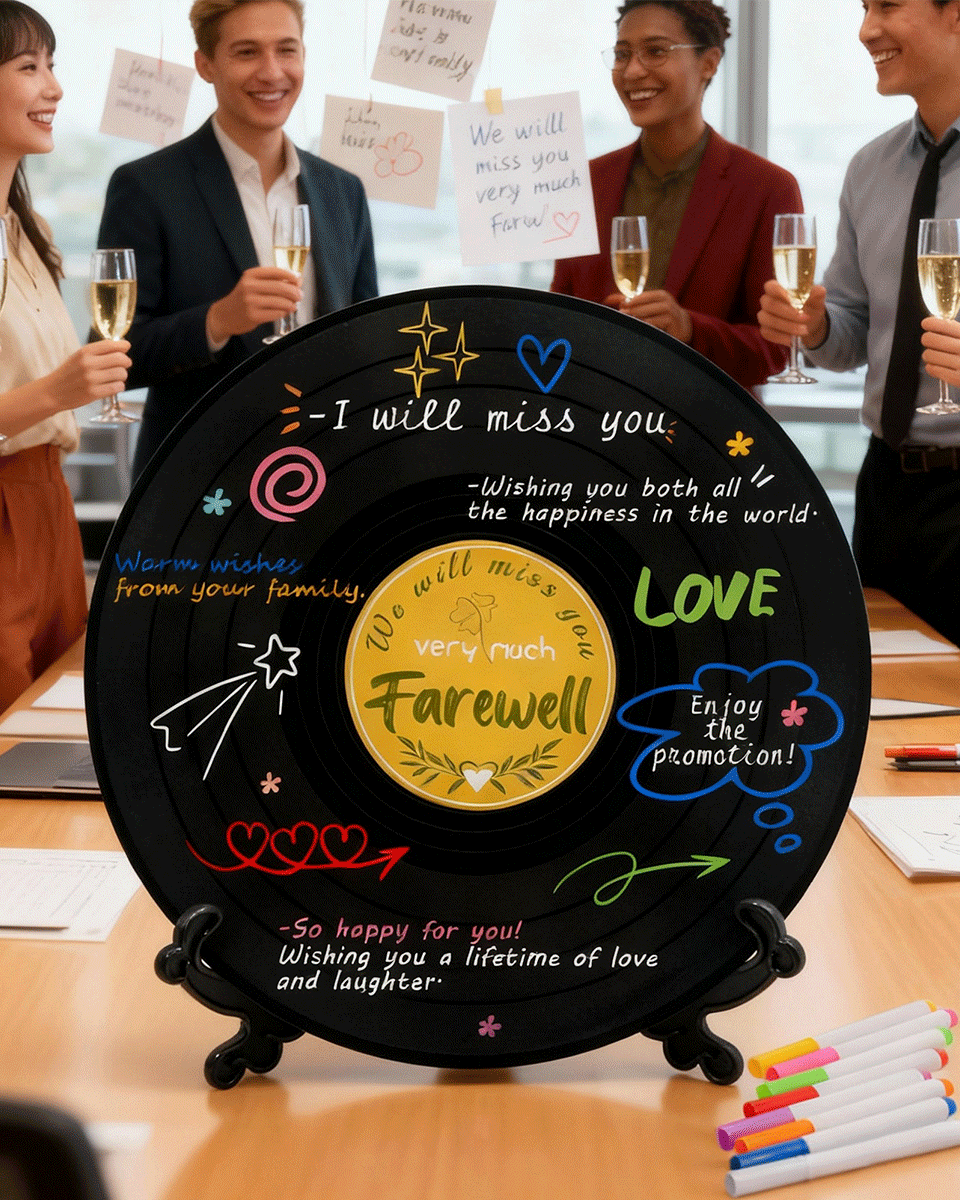 We willl
miss you
very much
-I will miss you
-Wishing you both all
the happiness in the world.
Warm wishes
from your family.
LOVE
We will miss you
very much
Farewell
Enjoy
the
promotion!
-So happy for you!
Wishing you a lifetime of love
and laughter.